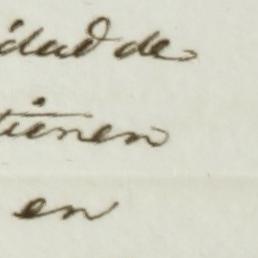 idad de
tienen
en